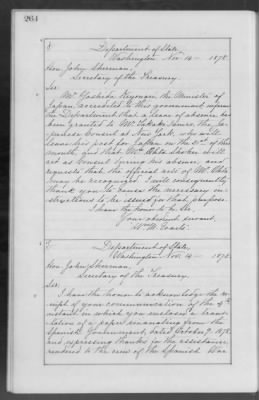 264
Department of State,
Washington Nov. 14 - 1878.
Hon. John Sherman,
Secretary of the Treasury.
Sir:
Mr. Yoshida Kiyonari the Minister of
Japan accredited to this government informs
the Department that a leave of absence has
been granted to Mr. the Ja-
panese Consul at New York, who will
leave his post for Japan on the of this
month, and that Mr. will
act as Consul during his absence, and
requests that the official acts of Mr.
may be recognized. I will consequently
thank you to cause the necessary in-
structions to be issued for that purpose.
I have the honor to be Sir,
Your obedient servant,
Wm. M. Evarts.
Department of State,
Washington Nov. 14 - 1878.
Hon. John Sherman,
Secretary of the Treasury.
Sir:
I have the honor to acknowledge the re-
ceipt of your communication of the
instant in which you enclose a trans-
lation of a paper emanating from the
Spanish Government, dated October 9, 1878,
and expressing thanks for the assistance
rendered to the crew of the Spanish